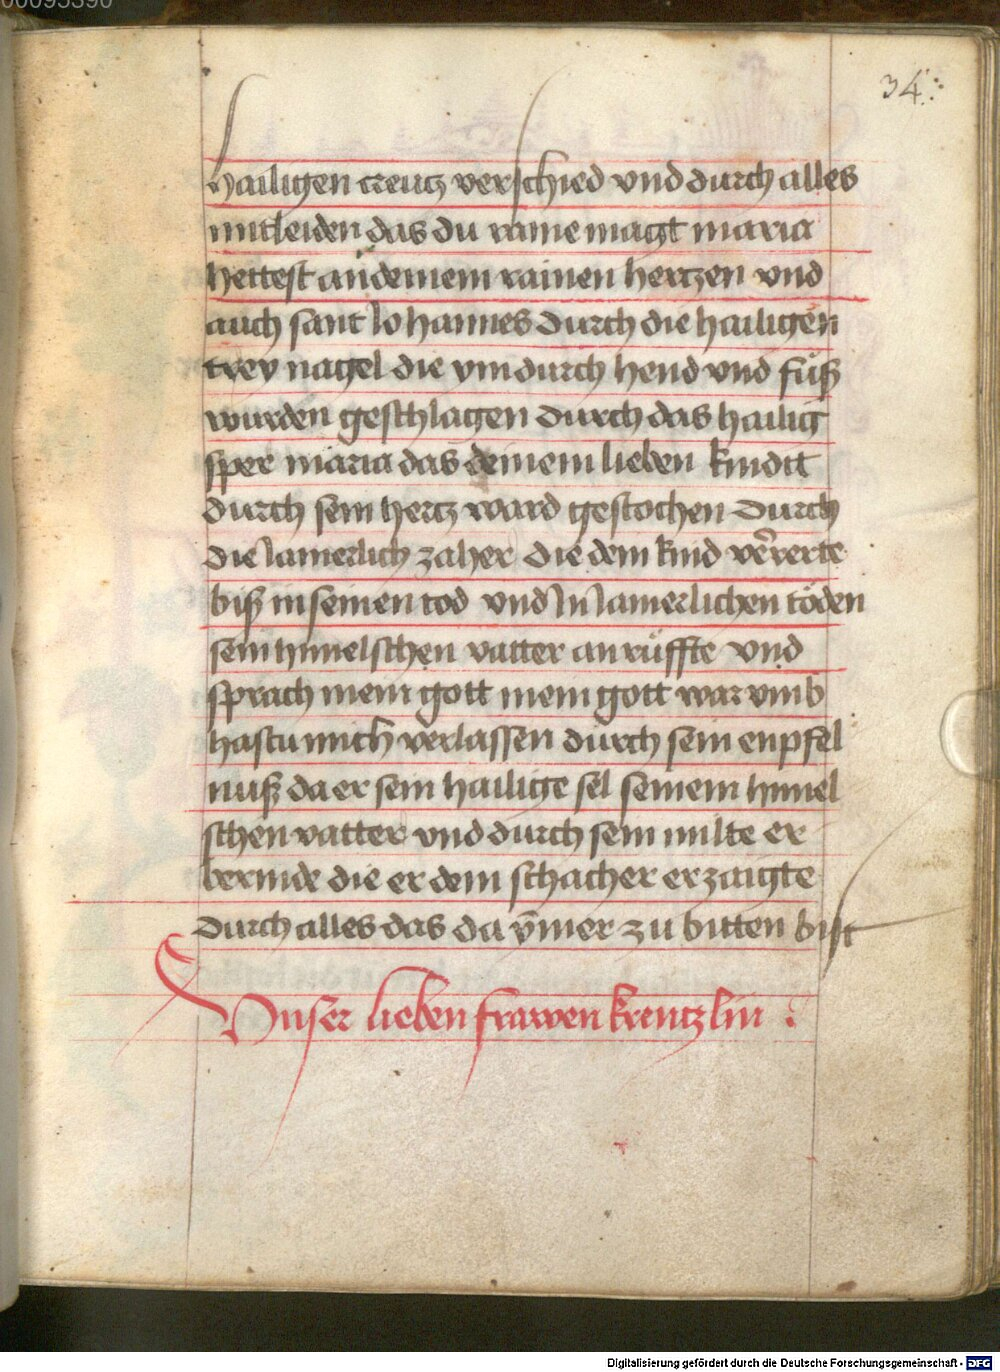 00095390
34
hailigen creutz verschied vnd durch alles
mitleiden das du raine magt maria
hettest an deinem rainen hertzen vnd
auch sant Johannes durch die hailigen
trey nagel die ym durch hend vnd füß
wurden geschlagen durch das hailig
sper maria das deinem lieben kindtt
durch sein hertz ward gestochen durch
die Jamerlich zaher die dein kind verrerte
biß in seinen tod vnd In Jamerlichen töden
sein himelschen vatter an rüffte vnd
sprach mein gott mein gott war vmb
hastu mich verlassen durch sein enpfel
nuß da er sein hailige sel seinem himel
schen vatter vnd durch sein milte er
bermde die er dem schacher erzaigte
durch alles das da ÿmer zu bitten bist
Vnser lieben frawen krentzlin :
Digitalisierung gefördert durch die Deutsche Forschungsgemeinschaft - DFG